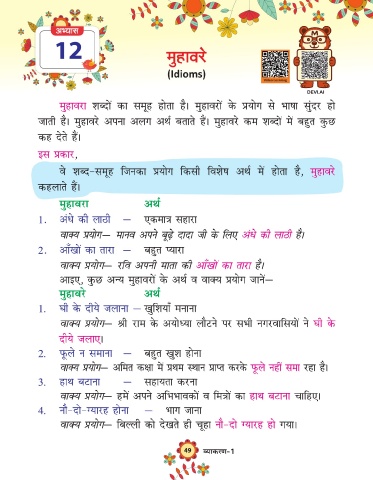 अभ्यास
12
मुहावरे
(Idioms)
DEVI.AI
मुहावरा शब्दों का समूह होता है। मुहावरों के प्रयोग से भाषा सुंदर हो
जाती है। मुहावरे अपना अलग अर्थ बताते हैं। मुहावरे कम शब्दों में बहुत कुछ
कह देते हैं।
इस प्रकार,
वे शब्द-समूह जिनका प्रयोग किसी विशेष अर्थ में होता है, मुहावरे
कहलाते हैं।
मुहावरा अर्थ
1. अंधे की लाठी – एकमात्र सहारा
वाक्य प्रयोग– मानव अपने बूढ़े दादा जी के लिए अंधे की लाठी है।
2. आँखों का तारा – बहुत प्यारा
वाक्य प्रयोग– रवि अपनी माता की आँखों का तारा है।
आइए, कुछ अन्य मुहावरों के अर्थ व वाक्य प्रयोग जानें–
मुहावरे अर्थ
1. घी के दीये जलाना – खुशियाँ मनाना
वाक्य प्रयोग– श्री राम के अयोध्या लौटने पर सभी नगरवासियों ने घी के
दीये जलाए।
2. फूले न समाना – बहुत खुश होना
वाक्य प्रयोग– अमित कक्षा में प्रथम स्थान प्राप्त करके फूले नहीं समा रहा है।
3. हाथ बटाना – सहायता करना
वाक्य प्रयोग– हमें अपने अभिभावकों व मित्रों का हाथ बटाना चाहिए।
4. नौ-दो-ग्यारह होना – भाग जाना
वाक्य प्रयोग– बिल्ली को देखते ही चूहा नौ-दो ग्यारह हो गया।
49 व्याकरण-1